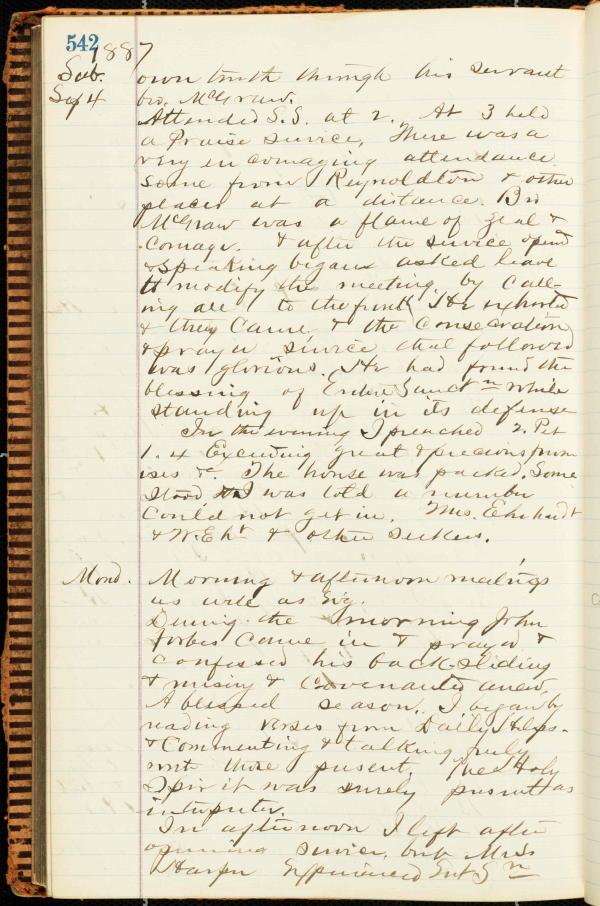 542
1887
Sab. own truth through his servant
Sep 4 bro. McGraw.
Attended S.S. at 2. At 3 held
a Praise service, There was a
very encouraging attendance
Some from Reynoldton & other
places at a distance. Bro
McGraw was a flame of zeal &
courage. & after the service opened
& speaking began asked leave
to modify the meeting by call-
ing all to the front. He exhorted
& they came & the consecration
& prayer service that followed
was glorious. He had found the
blessing of Entire Sanctn while
standing up in its defense
In the evening I preached 2. Pet
1. 4 Exceeding great & precious prom
ises &c. The house was packed. Some
stood & I was told a number
could not get in. Mrs. Ehrhardt
& W. Eht & other seekers.
Mond. Morning & afternoon meetings
as well as Evg.
During the morning John
Forbes came in & prayed &
confessed his back-sliding
& misery & covenanted anew.
A blessed season. I began by
reading verses from Daily Helps.
& commenting & talking freely
with those present. The Holy
Spirit was surely present as
interpreter.
In afternoon I left after
opening service, but Mrs
Harper Experienced Ent. Sn